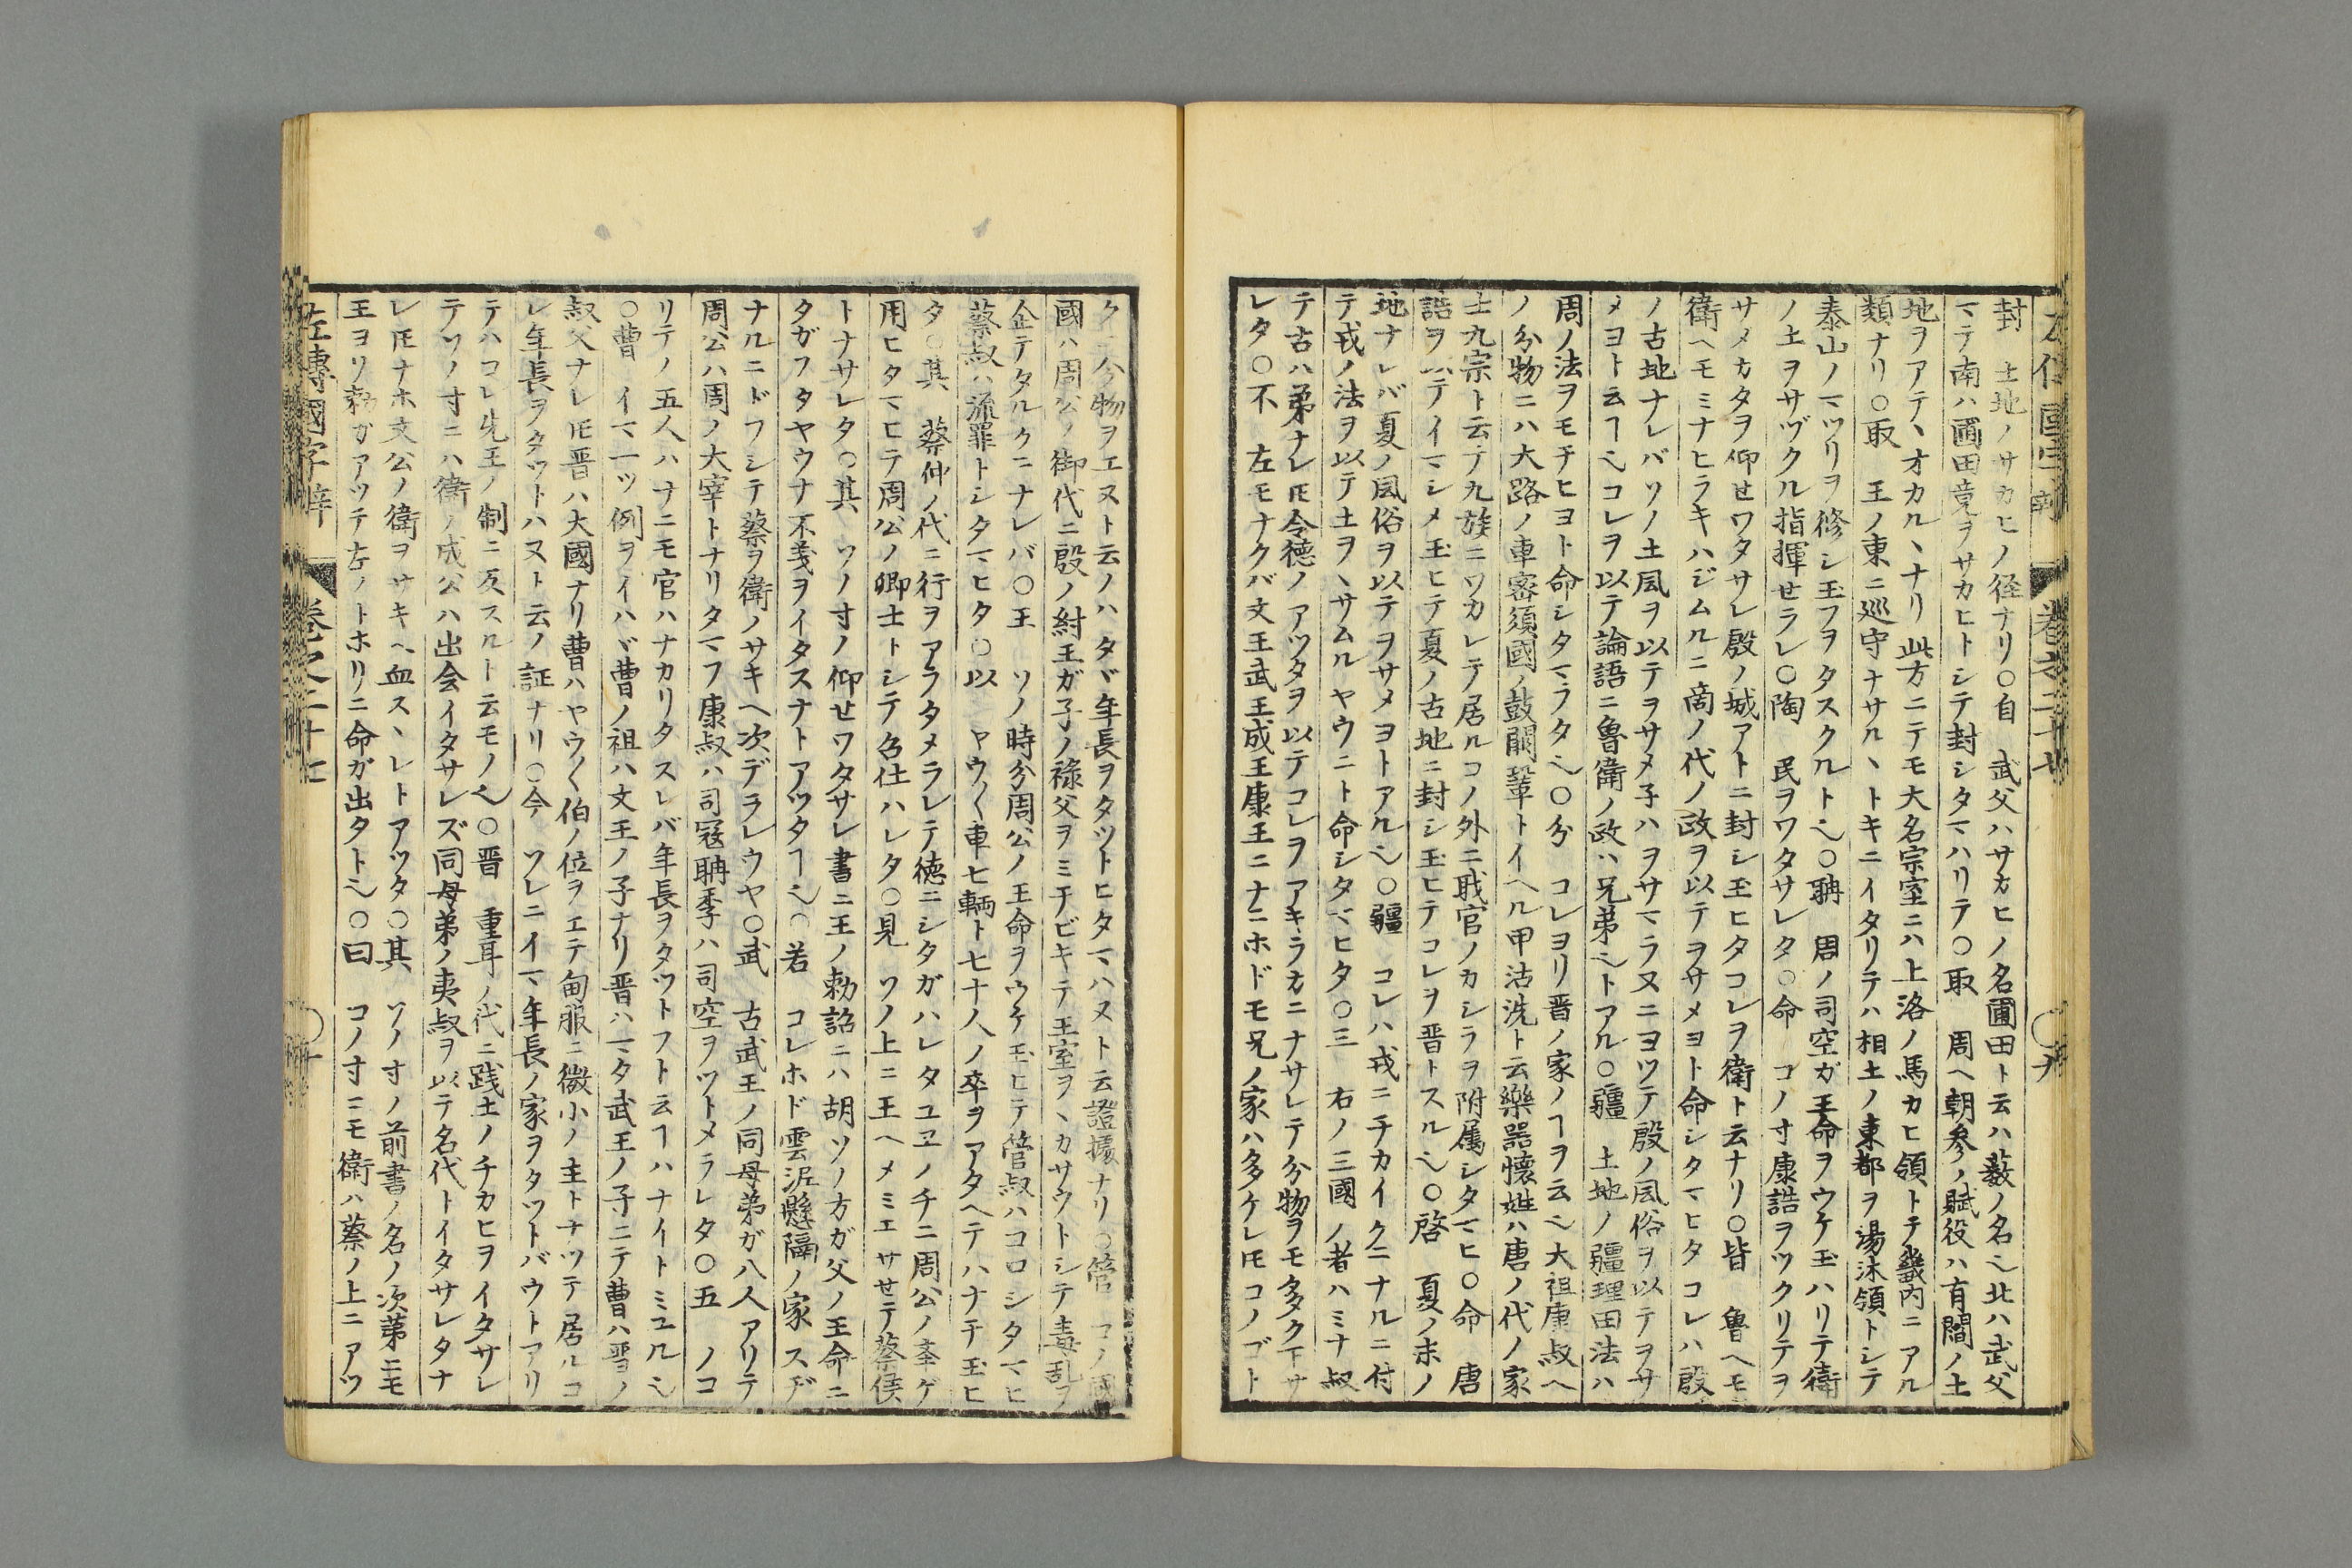 封 土地ノサカヒノ径ナリ○自 武父ハサカヒノ名圃田ト云ハ藪ノ名也北ハ武父
マテ南ハ圃田竟ヲサカヒトシテ封シタマハリテ○取 周ヘ朝参ノ賦役ハ有閻ノ土
地ヲアテヽオカルヽナリ此方ニテモ大名宗室ニハ上洛ノ馬カヒ領トテ畿内ニアル
類ナリ○取 王ノ東ニ巡守ナサルヽトキニイタリテハ相土ノ東都ヲ湯沐領トシテ
泰山ノマツリヲ修シ玉フヲタスクルト也○聃 周ノ司空ガ王命ヲウケ玉ハリテ衛
ノ土ヲサヅクル指揮せラレ○陶 民ヲワタサレタ○命 コノ寸康誥ヲツクリテヲ
サメカタヲ仰せワタサレ殷ノ城アトニ封シ玉ヒタコレヲ衛ト云ナリ○皆 魯ヘモ
衛ヘモミナヒラキハジムルニ啇ノ代ノ政ヲ以テヲサメヨト命シタマヒタコレハ殷
ノ古地ナレバソノ土風ヲ以テヲサメ子ハヲサマラ又ニヨツテ殷ノ風俗ヲ以テヲサ
メヨト云ヿ也コレヲ以テ論語ニ魯衛ノ政ハ兄弟也トアル○疆 土地ノ疆理田法ハ
周ノ法ヲモチヒヨト命シタマラタ也○分 コレヨリ晋ノ家ノヿヲ云也大祖唐叔ヘ
ノ分物ニハ大路ノ車密須國ノ鼓闕鞏トイヘル甲沽洗ト云樂器懐姓ハ唐ノ代ノ家
士九宗ト云テ九族ニワカレテ居ルコノ外ニ職官ノカシラヲ附属シタマヒ○命 唐
誥ヲ以テイマシメ玉ヒテ夏ノ古地ニ封シ玉ヒテコレヲ晋トスル也○啓 夏ノ末ノ
地ナレバ夏ノ風俗ヲ以テヲサメヨトアル也○疆 コレハ戎ニチカイクニナルニ付
テ戎ノ法ヲ以テ土ヲヽサムルヤウニト命シタマヒタ○三 右ノ三國ノ者ハミナ叔
テ古ハ弟ナレ𪜈令德ノアツタヲ以テコレヲアキラカニナサレテ分物ヲモタク下サ
レタ○不 左モナクバ文王武王成王康王ニナニホドモ兄ノ家ハ多ケレ𪜈コノゴト
ク分物ヲエヌト云ノハタヾ年長ヲタツトヒタマハヌト云證據ナリ○管 コノ國
國ハ周公ノ御代ニ殷ノ紂王ガ子ノ禄父ヲミチビキテ王室ヲヽカサウトシテ毒乱ヲ
企テタルクニナレバ○王 ソノ時分周公ノ王命ヲウケ玉ヒテ管叔ハコロシタマヒ
蔡叔ハ流罪トシタマヒタ○以 ヤウ〱車七輌ト七十人ノ卒ヲアタヘテハナチ玉ヒ
タ○其 蔡仲ノ代ニ行ヲアラタメラレテ徳ニシタガハレタユヱノチニ周公ノ挙ゲ
用ヒタマヒテ周公ノ卿士トシテ名仕ハレタ○見 ソノ上ニ王ヘメミエサせテ蔡侯
トナサレタ○其 ソノ寸ノ仰せワタサレ書ニ王ノ勅詔ニハ胡ソノ方ガ父ノ王命ニ
タガフタヤウナ不義ヲイタスナトアツタヿ也○若 コレホド雲泥懸隔ノ家スヂ
ナルニドフシテ蔡ヲ衛ノサキヘ次デラレウヤ○武 古武王ノ同母弟ガ八人アリテ
周公ハ周ノ大宰トナリタマフ康叔ハ司寇聃季ハ司空ヲツトメラレタ○五 ノコ
リテノ五人ハナニモ官ハナカリタスレバ年長ヲタツトフト云ヿハナイトミユル也
○曹 イマ一ツ例ヲイハヾ曹ノ祖ハ文王ノ子ナリ晋ハマタ武王ノ子ニテ曹ハ晋ノ
叔父ナレ𪜈晋ハ大國ナリ曹ハヤウ〱伯ノ位ヲエテ甸服ニ微小ノ主トナツテ居ルコ
レ年長ヲタツトハヌト云ノ証ナリ○今 ソレニイマ年長ノ家ヲタツトバウトアリ
テハコレ先王ノ制ニ反スルト云モノ也○晋 重耳ノ代ニ践土ノチカヒヲイタサレ
テソノ寸ニハ衛ノ成公ハ出会イタサレズ同母弟ノ夷叔ヲ以テ名代トイタサレタナ
レ𪜈ナホ文公ノ衛ヲサキヘ血スヽレトアツタ○其 ソノ寸ノ前書ノ名ノ次第ニモ
王ヨリ勅ガアツテ古ノトホリニ命ガ出タト也○曰 コノ寸ニモ衛ハ蔡ノ上ニアツ
左傳國字辯 卷之二十七